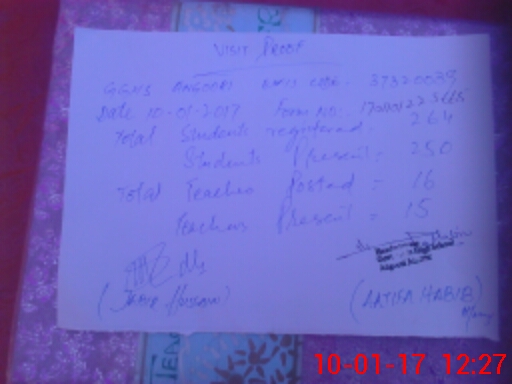 VISIT PROOF
GGHS ANGOORI EMIS CODE- 37320039
Date 10-01-2017 Form NO:-
Total Students registered: 264
Students Present: 250
Total Teachers Postad = 16
Teachers Present = 15
(AATIFA HABIB)
10-01-17 12:27